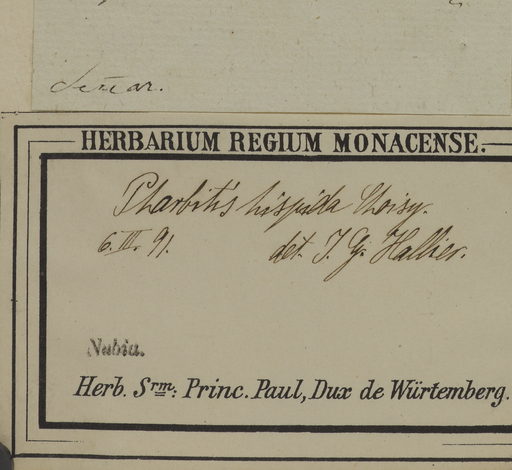 Señar.
HERBARIUM REGIUM MONACENSE.
Pharbitis hispida Choisy.
6. III. 91. det. J. G. Hallier.
Nubia.
Herb. Srm: Princ. Paul, Dux de Würtemberg.